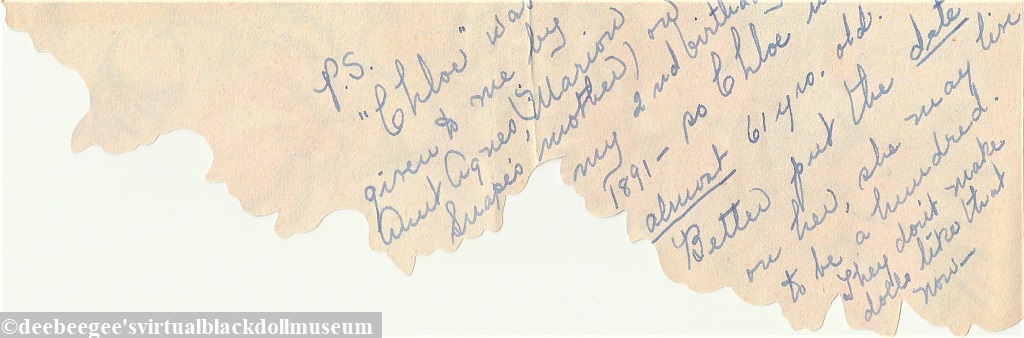 P.S.
"Chloe" was
given to me by
Aunt Agnes (Marion
Snape's mother) on
my 2nd birthday
1891 - so Chloe
almost 61 yrs. old.
Better put the date
on her, she may live
to be a hundred.
They don't make
dolls like that
now—
©deebeegee'svirtualblackdollmuseum